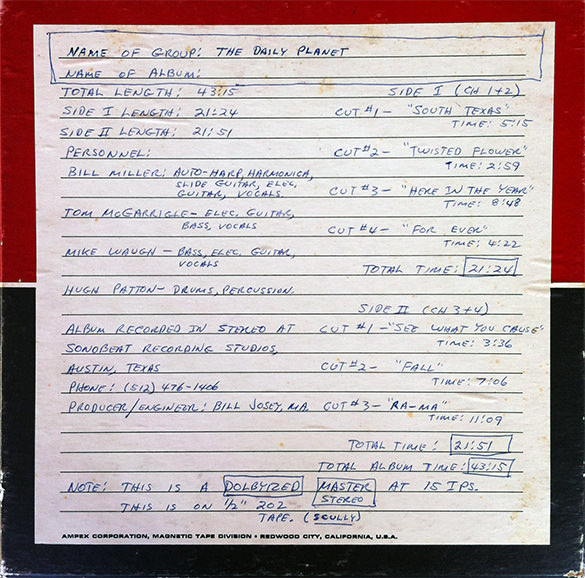 NAME OF GROUP: THE DAILY PLANET
NAME OF ALBUM:
TOTAL LENGTH: 43:15 SIDE I (CH 1+2)
SIDE I LENGTH: 21:24 CUT #1 - "SOUTH TEXAS"
TIME: 5:15
SIDE II LENGTH: 21:51
PERSONNEL: CUT #2 - "TWISTED FLOWER"
TIME: 2:59
BILL MILLER: AUTO-HARP, HARMONICA,
SLIDE GUITAR, ELEC.
GUITAR, VOCALS. CUT #3 - "HERE IN THE YEAR"
TIME: 8:48
TOM McGARRIGLE - ELEC. GUITAR,
BASS, VOCALS CUT #4 - "FOR EVER"
TIME: 4:22
MIKE WAUGH - BASS, ELEC. GUITAR,
VOCALS
TOTAL TIME: 21:24
HUGH PATTON - DRUMS, PERCUSSION.
SIDE II (CH 3+4)
ALBUM RECORDED IN STEREO AT CUT #1 - "SEE WHAT YOU CAUSE"
TIME: 3:36
SONOBEAT RECORDING STUDIOS,
AUSTIN, TEXAS CUT #2 - "FALL"
TIME: 7:06
PHONE: (512) 476-1406
PRODUCER/ENGINEER: BILL JOSEY, MA. CUT #3 - "RA-MA"
TIME: 11:09
TOTAL TIME: 21:51
TOTAL ALBUM TIME: 43:15
NOTE: THIS IS A DOLBYIZED MASTER AT 15 IPS.
STEREO
THIS IS ON 1/2" 202
TAPE. (SCULLY)
AMPEX CORPORATION, MAGNETIC TAPE DIVISION • REDWOOD CITY, CALIFORNIA, U.S.A.